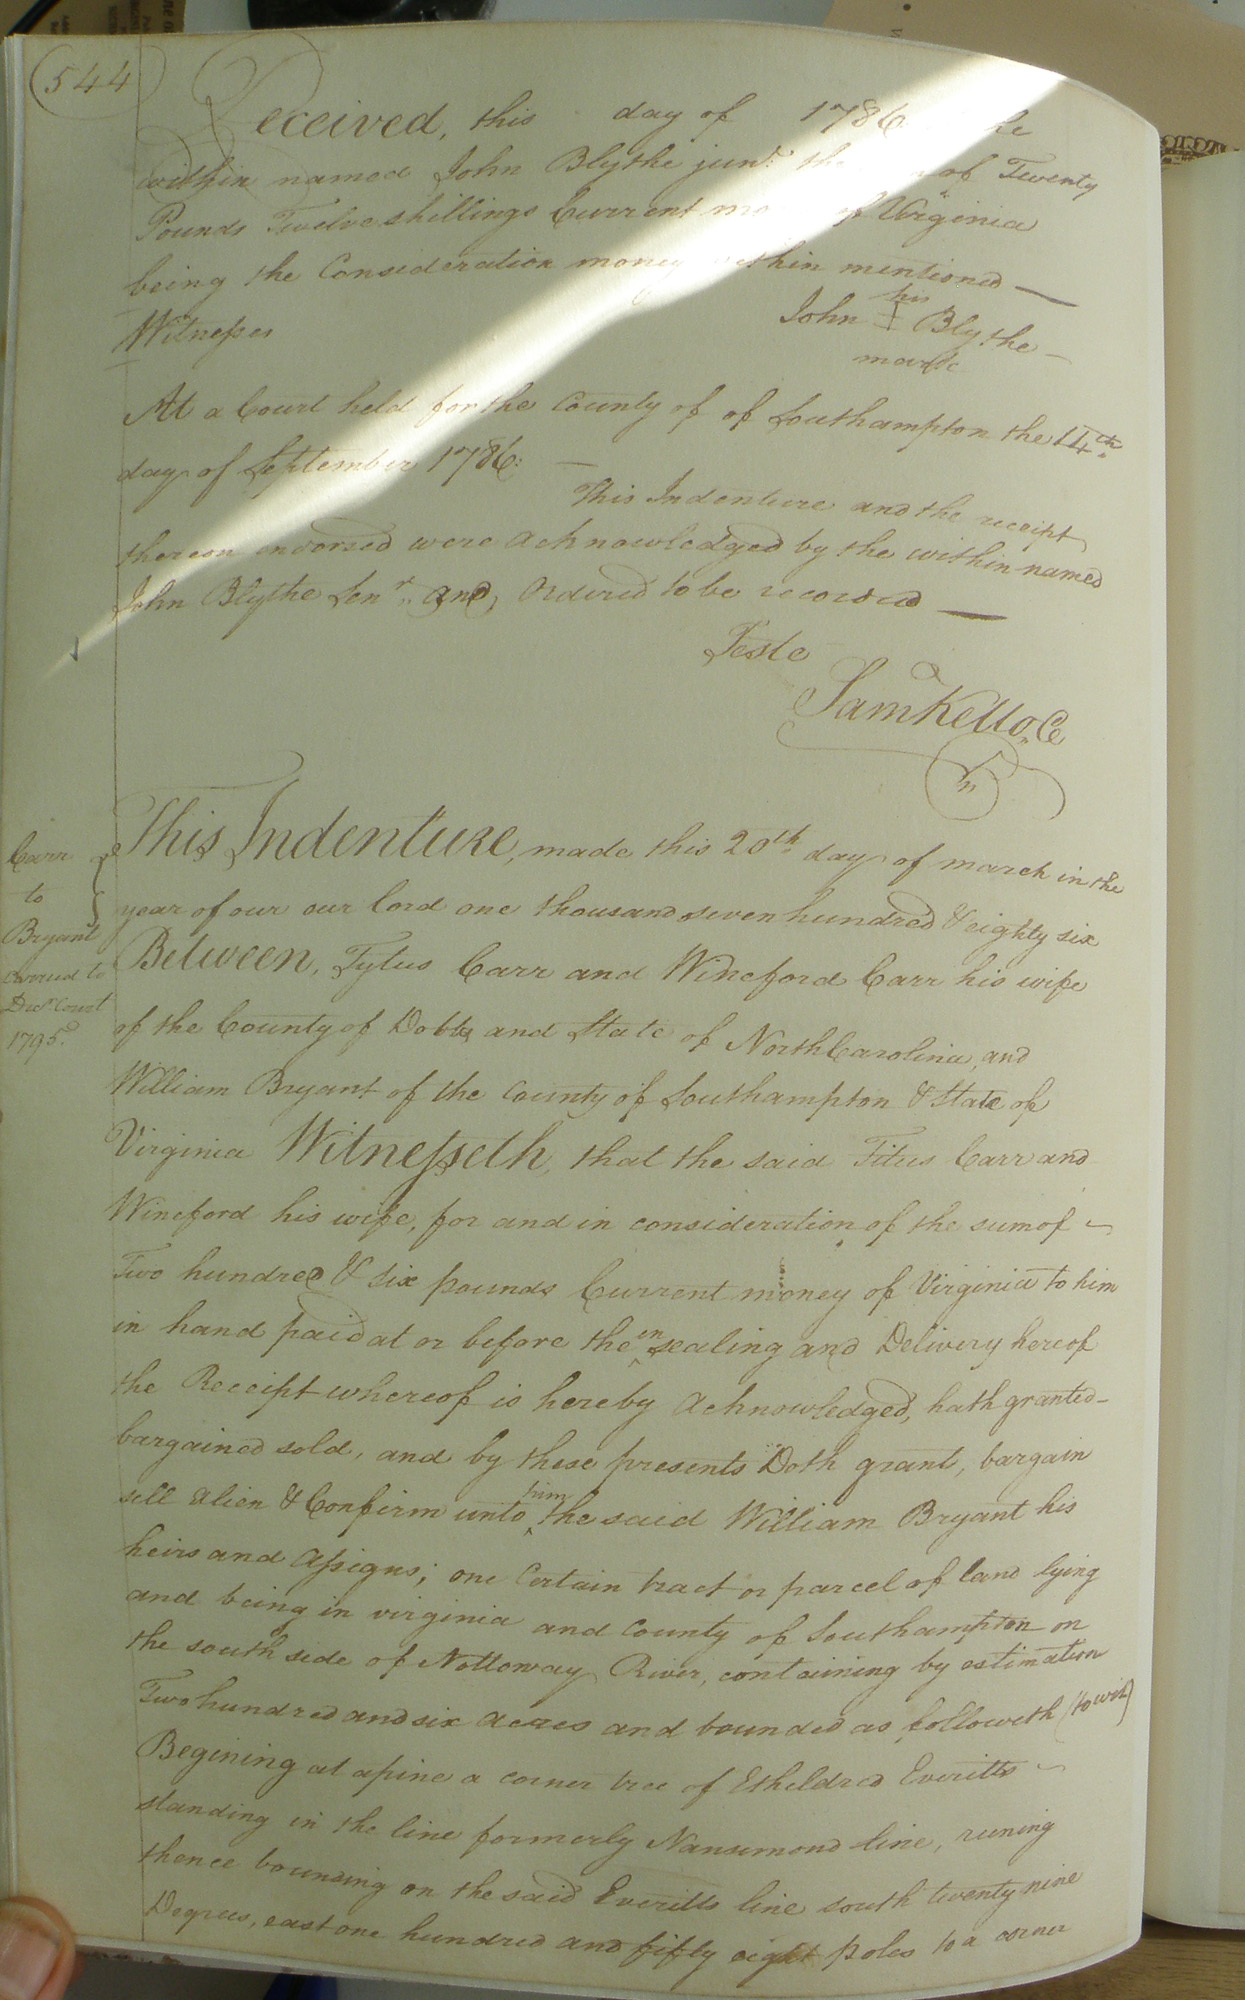 544
Received, this day of 1786
within named John Blythe junr. of Twenty
Pounds Twelve shillings Current of Virginia
being the Consideration money within mentioned —
Witnesses
his
John I Blythe —
mark
At a Court held for the County of of Southampton the 14th
day of September 1786: —
This Indenture and the receipt
thereon endorsed were acknowledged by the within named
John Blythe Senr. and, Ordered to be recorded —
Teste
Sam Kello, C
Carr
to
Bryant
1795
This Indenture, made this 20th day of march in the
year of our our lord one thousand seven hundred & eighty six
Between, Tytus Carr and Wineford Carr his wife
of the County of Dobbs and State of North Carolina, and
William Bryant of the County of Southampton & State of
Virginia Witnesseth, that the said Titus Carr and
Wineford his wife, for and in consideration of the sum of
Two hundred & six pounds Current money of Virginia to him
in hand paid at or before the ensealing and Delivery hereof
the Receipt whereof is hereby acknowledged, hath granted
bargained sold, and by these presents Doth grant, bargain
sell alien & Confirm unto him the said William Bryant his
heirs and Assigns; one Certain tract or parcel of land lying
and being in virginia and County of Southampton on
the south side of Nottoway River, containing by estimation
Two hundred and six acres and bounded as followeth (to wit)
Begining at a pine a corner tree of Etheldred Everitts
standing in the line formerly Nansemond line, runing
thence bounding on the said Everitts line south twenty nine
Degrees, east one hundred and fifty eight poles to a corner